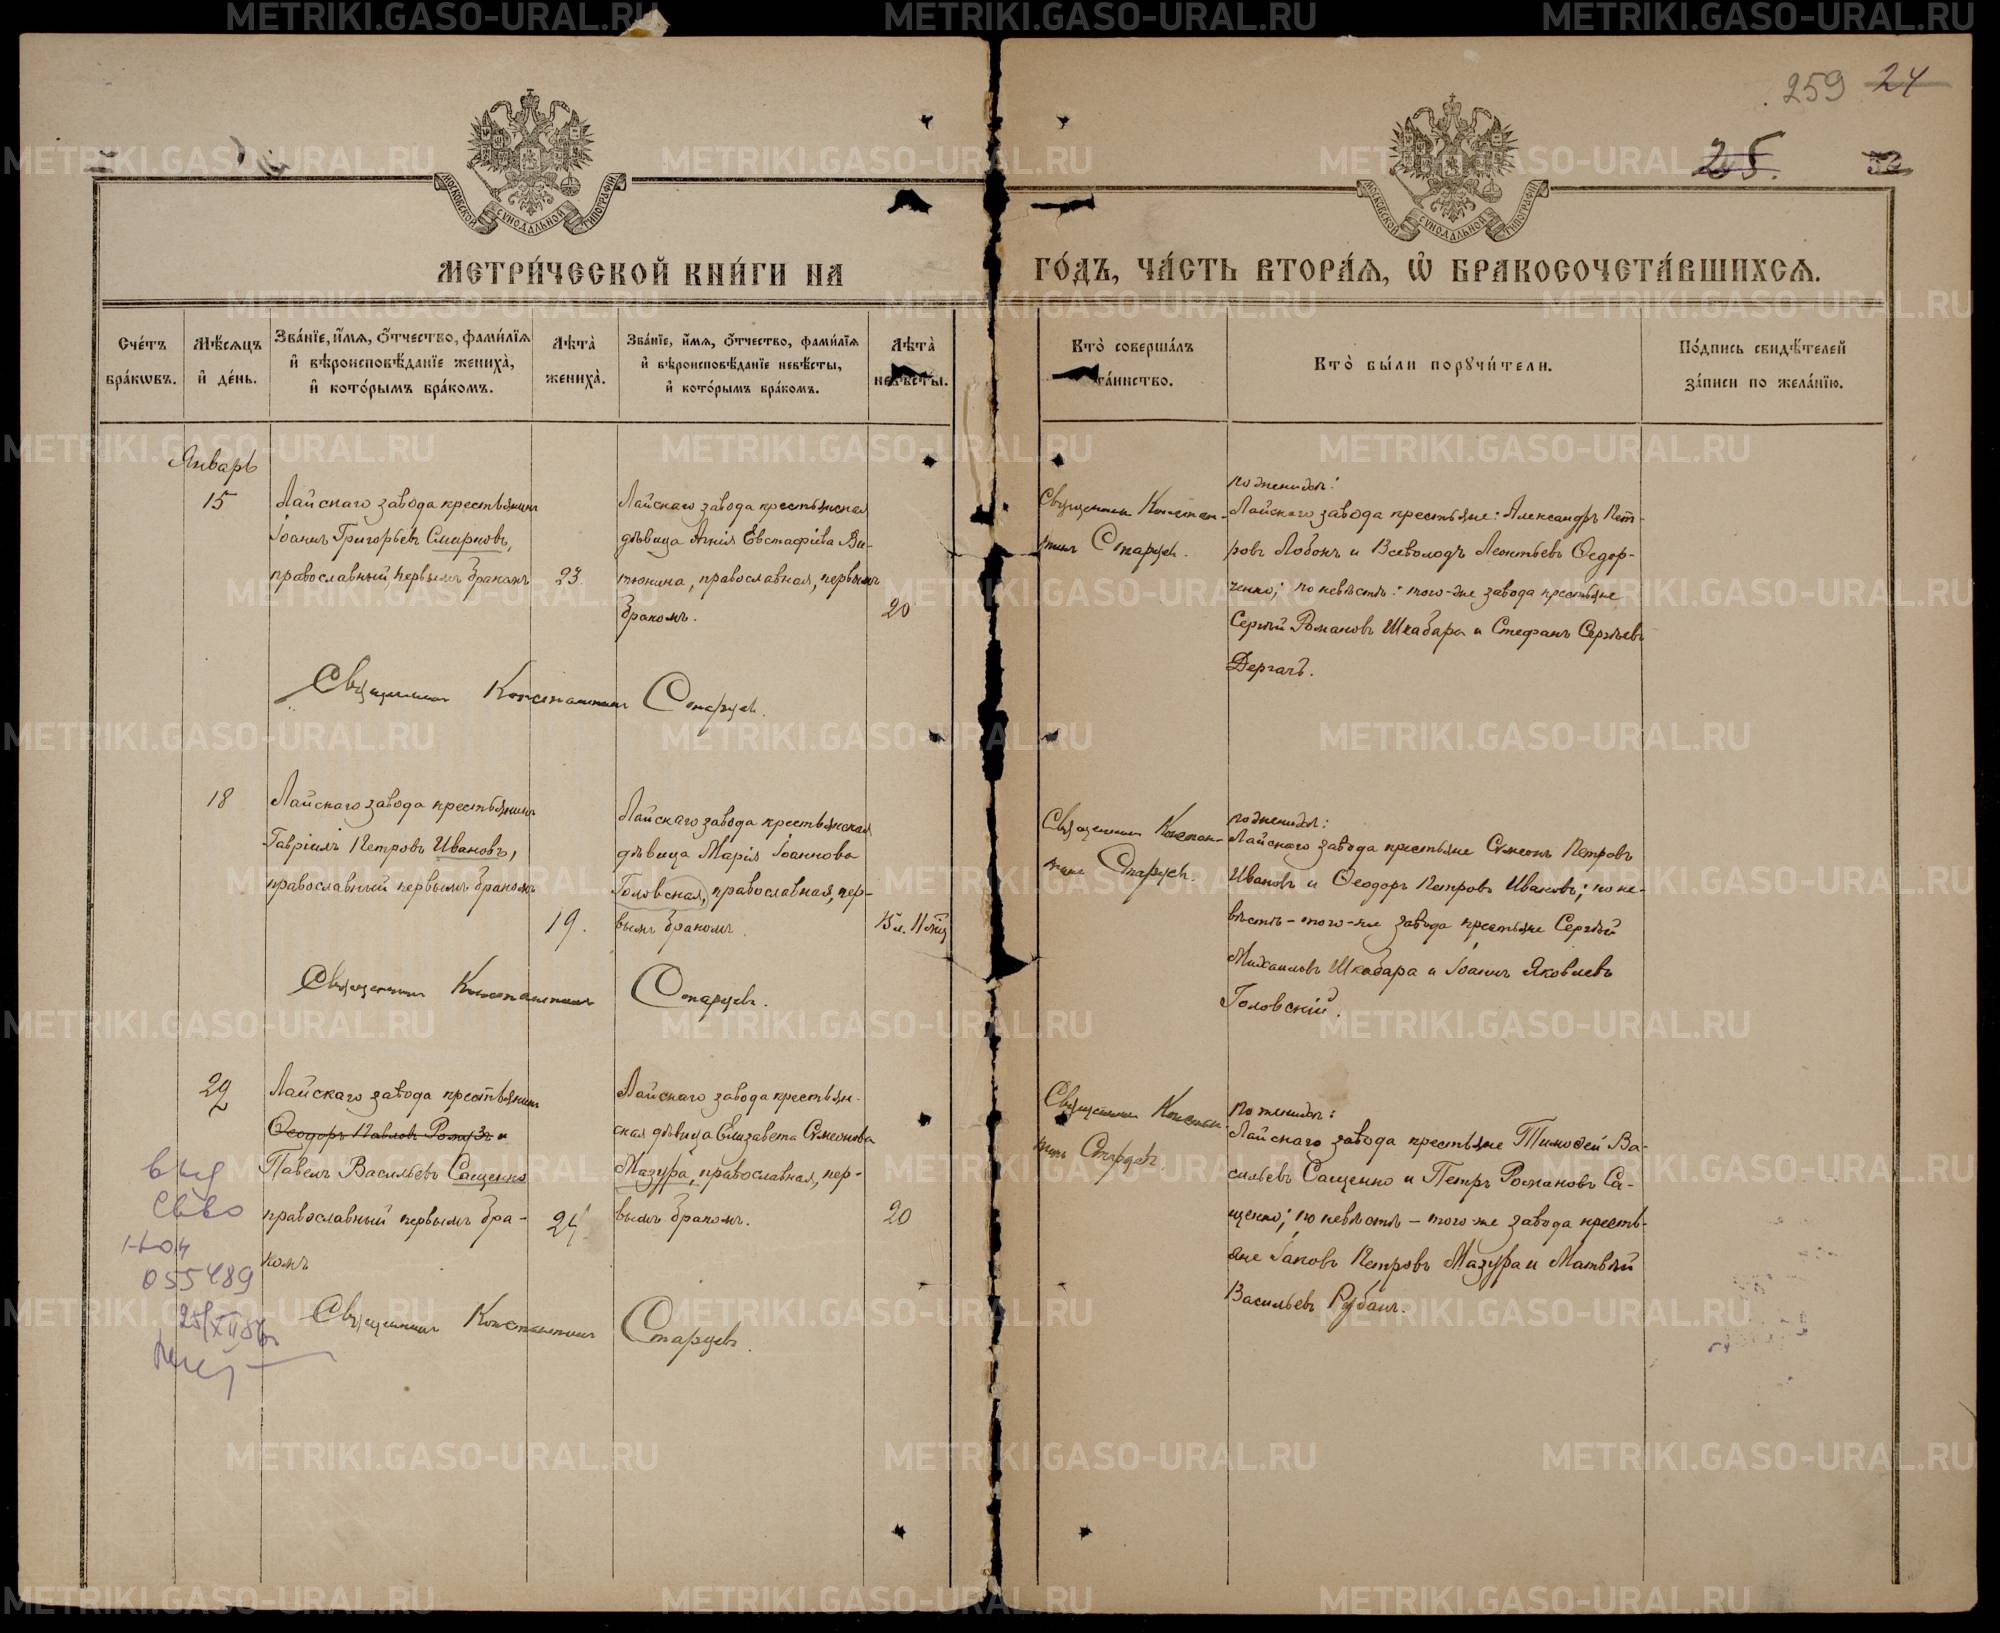 259 24
25. 52
МОСКОВСКОЙ СѴНОДАЛЬНОЙ ТИПОГРАФІИ
МОСКОВСКОЙ СѴНОДАЛЬНОЙ ТИПОГРАФІИ
МЕТРИ́ЧЕСКОЙ КНИ́ГИ НА ГО́ДЪ, ЧА́СТЬ ВТОРА́Я, Ѡ҆ БРАКОСОЧЕТА́ВШИХСЯ.
Сче́тъ бра́кѡвъ.
Мѣ́сяцъ и҆ де́нь.
Зва́нїе, и҆́мя, ѻ҆́тчество, фами́лїя и҆ вѣроисповѣ́данїе жениха̀, и҆ кото́рымъ бра́комъ.
Лѣта̀ жениха̀.
Зва́нїе, и҆́мя, ѻ҆́тчество, фами́лїя и҆ вѣроисповѣ́данїе невѣ́сты, и҆ кото́рымъ бра́комъ.
Лѣта̀ невѣ́сты.
Кто̀ соверша́лъ та́инство.
Кто̀ бы́ли порꙋчи́тели.
По́дпись свидѣ́телей за́писи по жела́нїю.
Январь
15
Лайскаго завода крестьянинъ
Іоаннъ Григорьевъ Смирновъ,
православный, первымъ бракомъ
23.
Лайскаго завода крестьянская
дѣвица Агнія Евстафіева Ви-
тюнина, православная, первымъ
бракомъ.
20
Священникъ Констан-
тинъ Старцевъ.
по женихѣ:
Лайскаго завода крестьяне: Александръ Пет-
ровъ Лобонъ и Всеволодъ Леонтьевъ Ѳедор-
ченко; по невѣстѣ: того-же завода крестьяне
Сергѣй Романовъ Шкабара и Стефанъ Сергѣевъ
Дергачъ.
Священникъ Константинъ Старцевъ.
18
Лайскаго завода крестьянинъ
Гавріилъ Петровъ Ивановъ,
православный первымъ бракомъ
19.
Лайскаго завода крестьянская
дѣвица Марія Іоаннова
Головская, православная, пер-
вымъ бракомъ.
15 л. 11 мѣс
Священникъ Констан-
тинъ Старцевъ.
по женихѣ:
Лайскаго завода крестьяне Сѵмеонъ Петровъ
Ивановъ и Ѳеодоръ Петровъ Ивановъ; по не-
вѣстѣ – того-же завода крестьяне Сергѣй
Михаиловъ Шкабара и Іоаннъ Яковлевъ
Головскій.
Священникъ Константинъ Старцевъ.
29
Лайскаго завода крестьянинъ
Ѳеодоръ Павловъ
Павелъ Васильевъ Сащенко
православный первымъ бра-
комъ
24
Лайскаго завода крестьян-
ская дѣвица Елизавета Сѵмеонова
Мазура, православная, пер-
вымъ бракомъ.
20
Священникъ Констан
тинъ Старцевъ.
по женихѣ:
Лайскаго завода крестьяне Тимоѳей Ва-
сильевъ Сащенко и Петръ Романовъ Са-
щенко; по невѣстѣ – того-же завода кресть-
яне Іаковъ Петровъ Мазура и Матвѣй
Васильевъ Рубанъ.
Священникъ Константинъ Старцевъ.
055489
METRIKI.GASO-URAL.RU